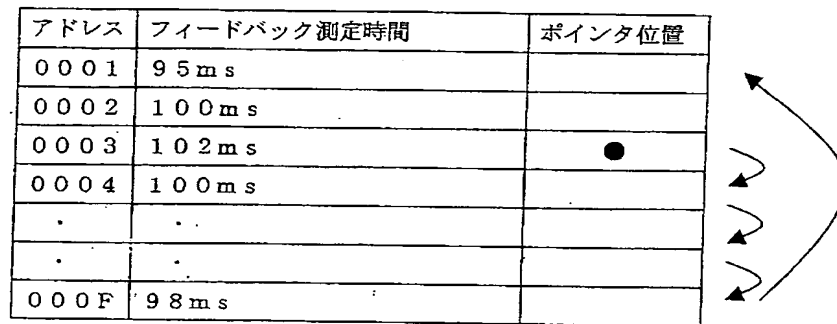 アドレス フィードバック測定時間 ポインタ位置
0001 95ms
0002 100ms
0003 102ms ●
0004 100ms
・ ・
・ ・
000F 98ms